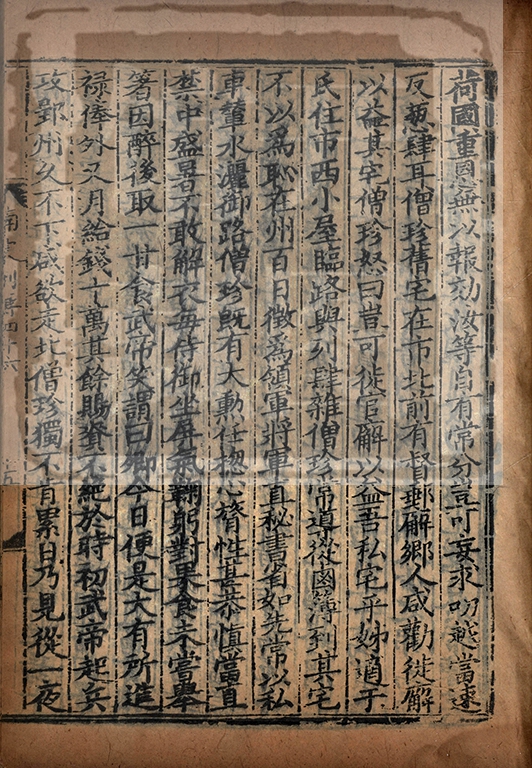 荷國重恩無以報効汝等自有常分豈可妄求叨越當速
反葱肆耳僧珍舊宅在市北前有督郵廨鄉人咸勸徙廨
以益其宅僧珍怒曰豈可徙官廨以益吾私宅乎姊適于
氏住市西小屋臨路與列肆雜僧珍常道從鹵簿到其宅
不以爲恥在州百日徵爲領軍將軍直秘書省如先常以私
車輦水灑御路僧珍既有大勳任緫心膂性甚恭慎當直
禁中盛暑不敢解衣每侍御坐屏氣鞠躬對果食未嘗舉
箸因醉後取一甘食武帝笑謂曰卿今日便是大有所進
禄俸外又月給錢十萬其餘賜賚不絶於時初武帝起兵
攻郢州久不下咸欲走北僧珍獨不肯累日乃見從一夜